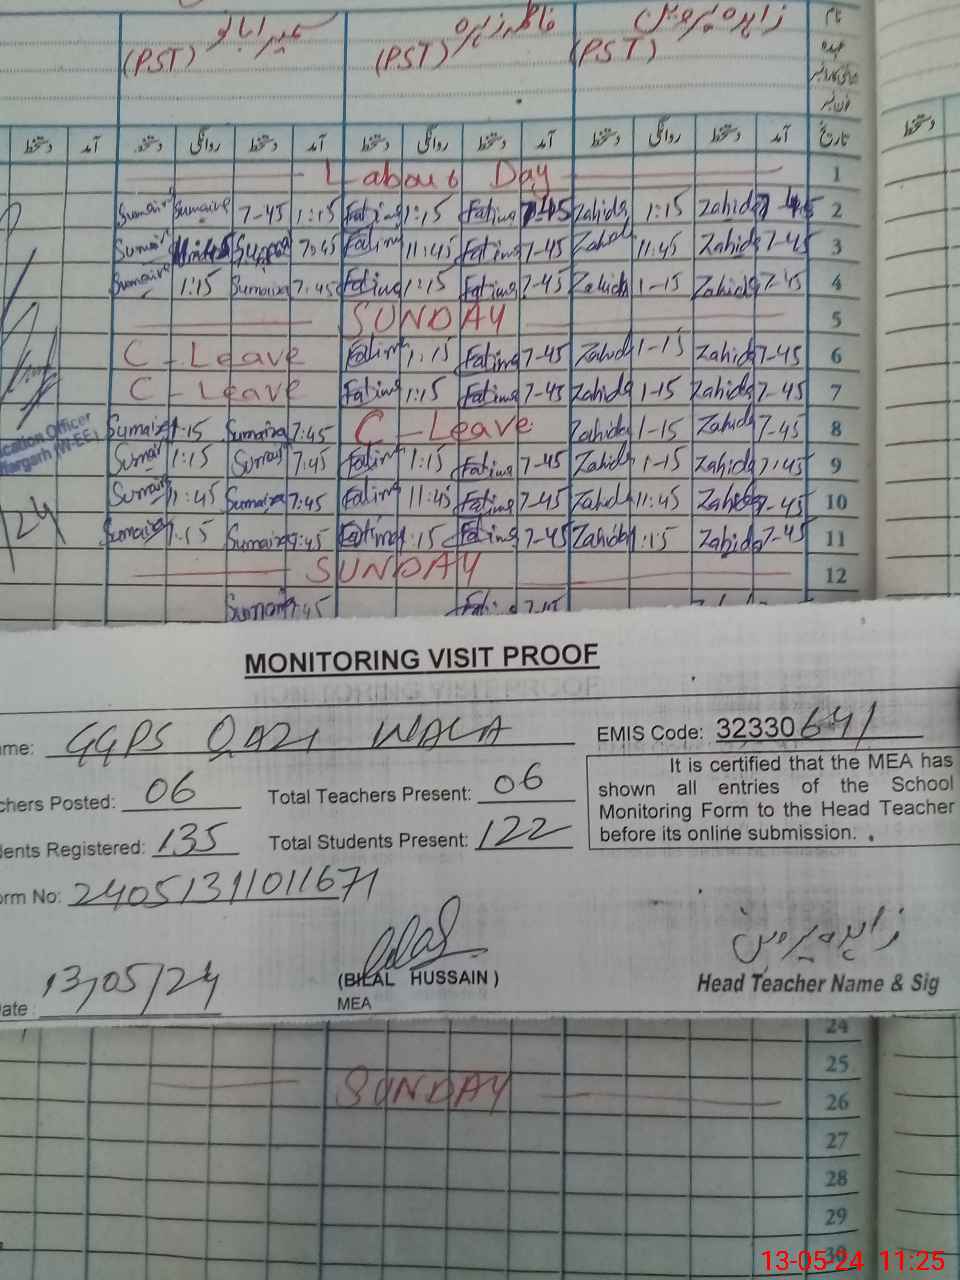 زاہدہ پروین فاطمہ زہرہ سمیرا بانو نام
(PST) (PST) (PST) عہدہ
تاریخ آمد دستخط روانگی دستخط آمد دستخط روانگی دستخط آمد دستخط روانگی دستخط آمد دستخط
Labour Day 1
Sumaira Sumaira 7-45 1:15 Fatima 1:15 Fatima 7-45 Zahida 1:15 Zahida 7-45 2
Sumaira 11:45 Sumaira 7:45 Fatima 11:45 Fatima 7-45 Zahida 11:45 Zahida 7-45 3
Sumaira 1:15 Sumaira 7:45 Fatima 1:15 Fatima 7-45 Zahida 1-15 Zahida 7-45 4
SUNDAY 5
C-Leave Fatima 1:15 Fatima 7-45 Zahida 1-15 Zahida 7-45 6
C-Leave Fatima 1:15 Fatima 7-45 Zahida 1-15 Zahida 7-45 7
Sumaira 1:15 Sumaira 7:45 C-Leave Zahida 1-15 Zahida 7-45 8
Sumaira 1:15 Sumaira 7:45 Fatima 1:15 Fatima 7-45 Zahida 1-15 Zahida 7:45 9
Sumaira 11:45 Sumaira 7:45 Fatima 11:45 Fatima 7-45 Zahida 11:45 Zahida 7-45 10
Sumaira 1:15 Sumaira 7:45 Fatima 1:15 Fatima 7-45 Zahida 1:15 Zahida 7-45 11
SUNDAY 12
Sumaira 7:45
cation Officer
(W-EE)
/24
MONITORING VISIT PROOF
me: GGPS QAZI WALA EMIS Code: 32330641
chers Posted: 06 Total Teachers Present: 06
ents Registered: 135 Total Students Present: 122
It is certified that the MEA has
shown all entries of the School
Monitoring Form to the Head Teacher
before its online submission.
orm No: 24051311011671
زاہدہ پروین
(BILAL HUSSAIN)
MEA
Head Teacher Name & Sig
ate: 13/05/24
24
25
SUNDAY 26
27
28
29
30
13-05-24 11:25